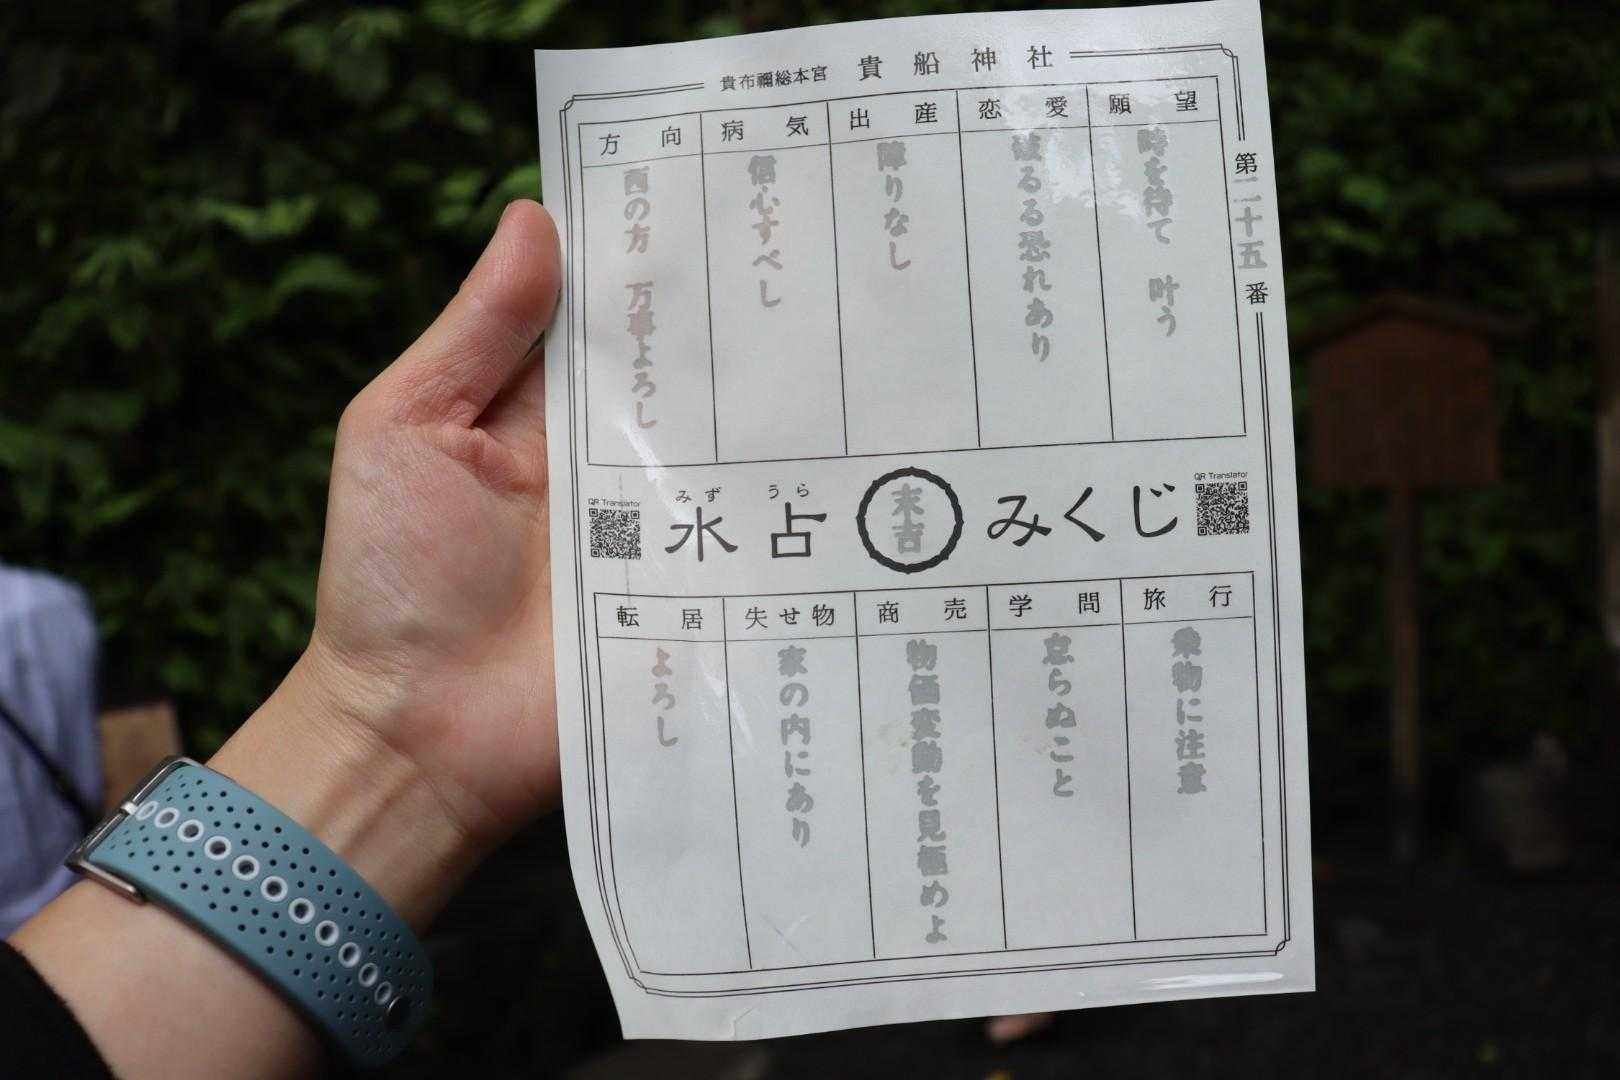 貴布禰総本宮 貴船神社
第二十五番
願望
時を待て 叶う
恋愛
破るる恐れあり
出産
障りなし
病気
信心すべし
方向
西の方 万事よろし
QR Translator
みず うら
水占 末吉 みくじ
QR Translator
旅行
乗物に注意
学問
怠らぬこと
商売
物価変動を見極めよ
失せ物
家の内にあり
転居
よろし